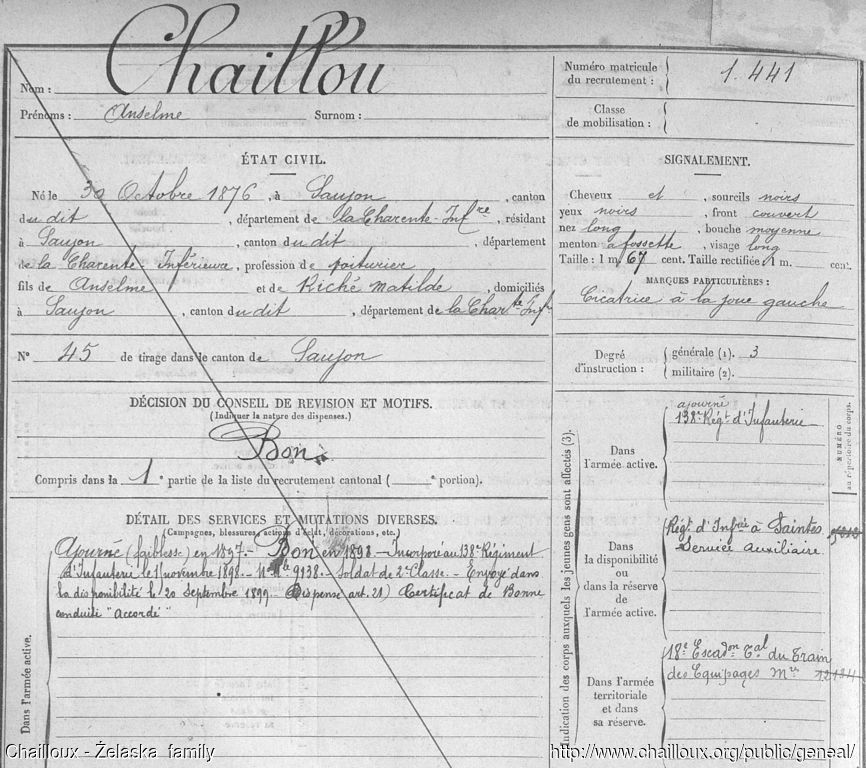 Nom : Chaillou
Prénoms : Anselme Surnom :
ÉTAT CIVIL.
Né le 30 Octobre 1876, à Saujon, canton
du dit, département de la Charente-Infre, résidant
à Saujon, canton du dit, département
de la Charente-Inférieure, profession de voiturier
fils de Anselme et de Riché Matilde, domiciliés
à Saujon, canton du dit, département de la Charte Infre
N° 45 de tirage dans le canton de Saujon
DÉCISION DU CONSEIL DE REVISION ET MOTIFS.
(Indiquer la nature des dispenses.)
Bon
Compris dans la 1e partie de la liste du recrutement cantonal ( e portion).
DÉTAIL DES SERVICES ET MUTATIONS DIVERSES.
Campagnes, blessures, actions d'éclat, décorations, etc.
Ajourné (faiblesse) en 1897.- Bon en 1898 - Incorporé au 138e Régiment
d'Infanterie le 1 novembre 1898.- N° Mle 9138.- Soldat de 2e Classe.- Envoyé dans
la disponibilité le 20 septembre 1899. (Dispense art. 21) Certificat de Bonne
conduite "Accordé"
Dans l'armée active.
Numéro matricule
du recrutement : 1.441
Classe
de mobilisation :
SIGNALEMENT.
Cheveux et, sourcils noirs
yeux noirs, front couvert
nez long, bouche moyenne
menton à fossette, visage long
Taille : 1 m. 67 cent. Taille rectifiée : 1 m. cent.
MARQUES PARTICULIÈRES :
Cicatrice à la joue gauche
Degré
d'instruction :
générale (1). 3
militaire (2).
Indication des corps auxquels les jeunes gens sont affectés (3).
NUMÉRO
au répertoire du corps.
Dans
l'armée active.
ajourné
138e Régt d'Infanterie
Dans
la disponibilité
ou
dans la réserve
de
l'armée active.
Régt d'Infrie à Saintes
Service Auxiliaire
Dans l'armée
territoriale
et dans
sa réserve.
18e Escadon Tal du Train
des Equipages Mle
Chailloux - Żelaska family
http://www.chailloux.org/public/geneal/